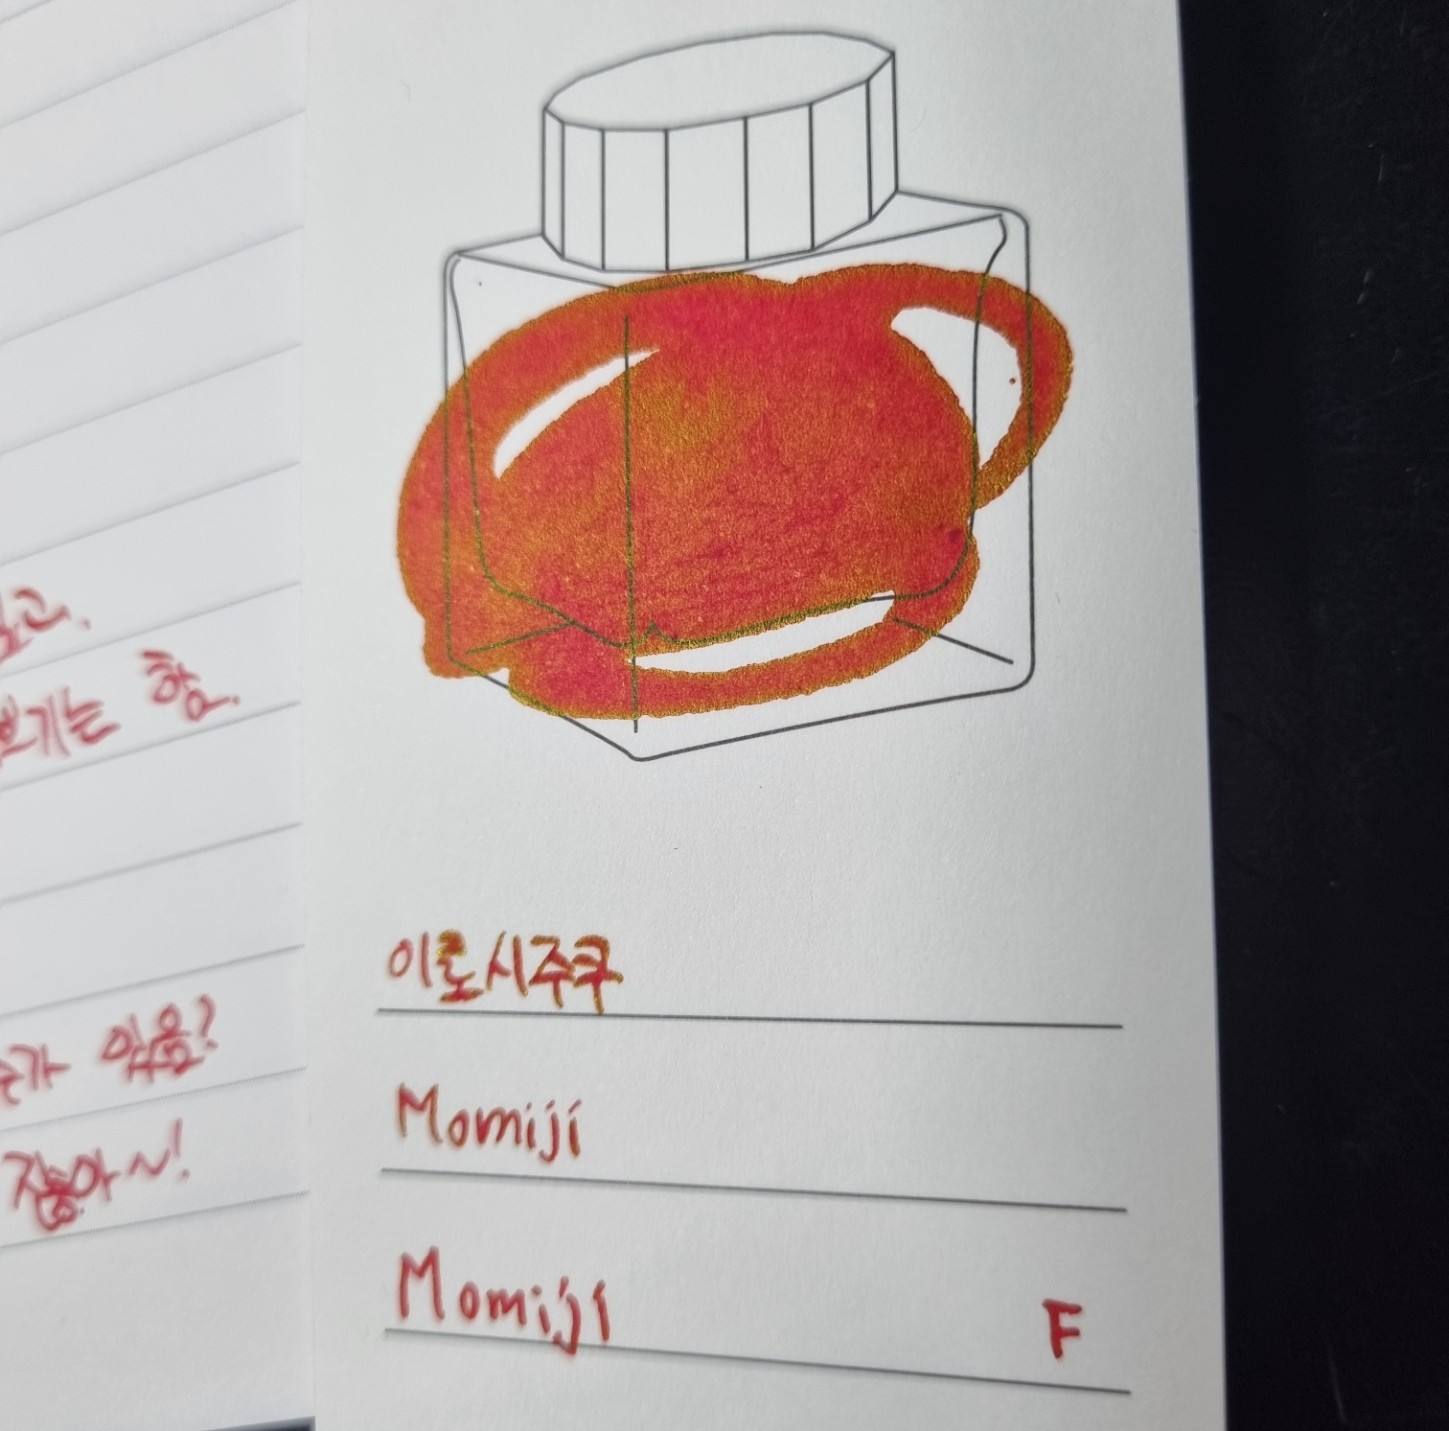 보기는 함.
있음?
이로시주쿠
Momiji
Momiji F